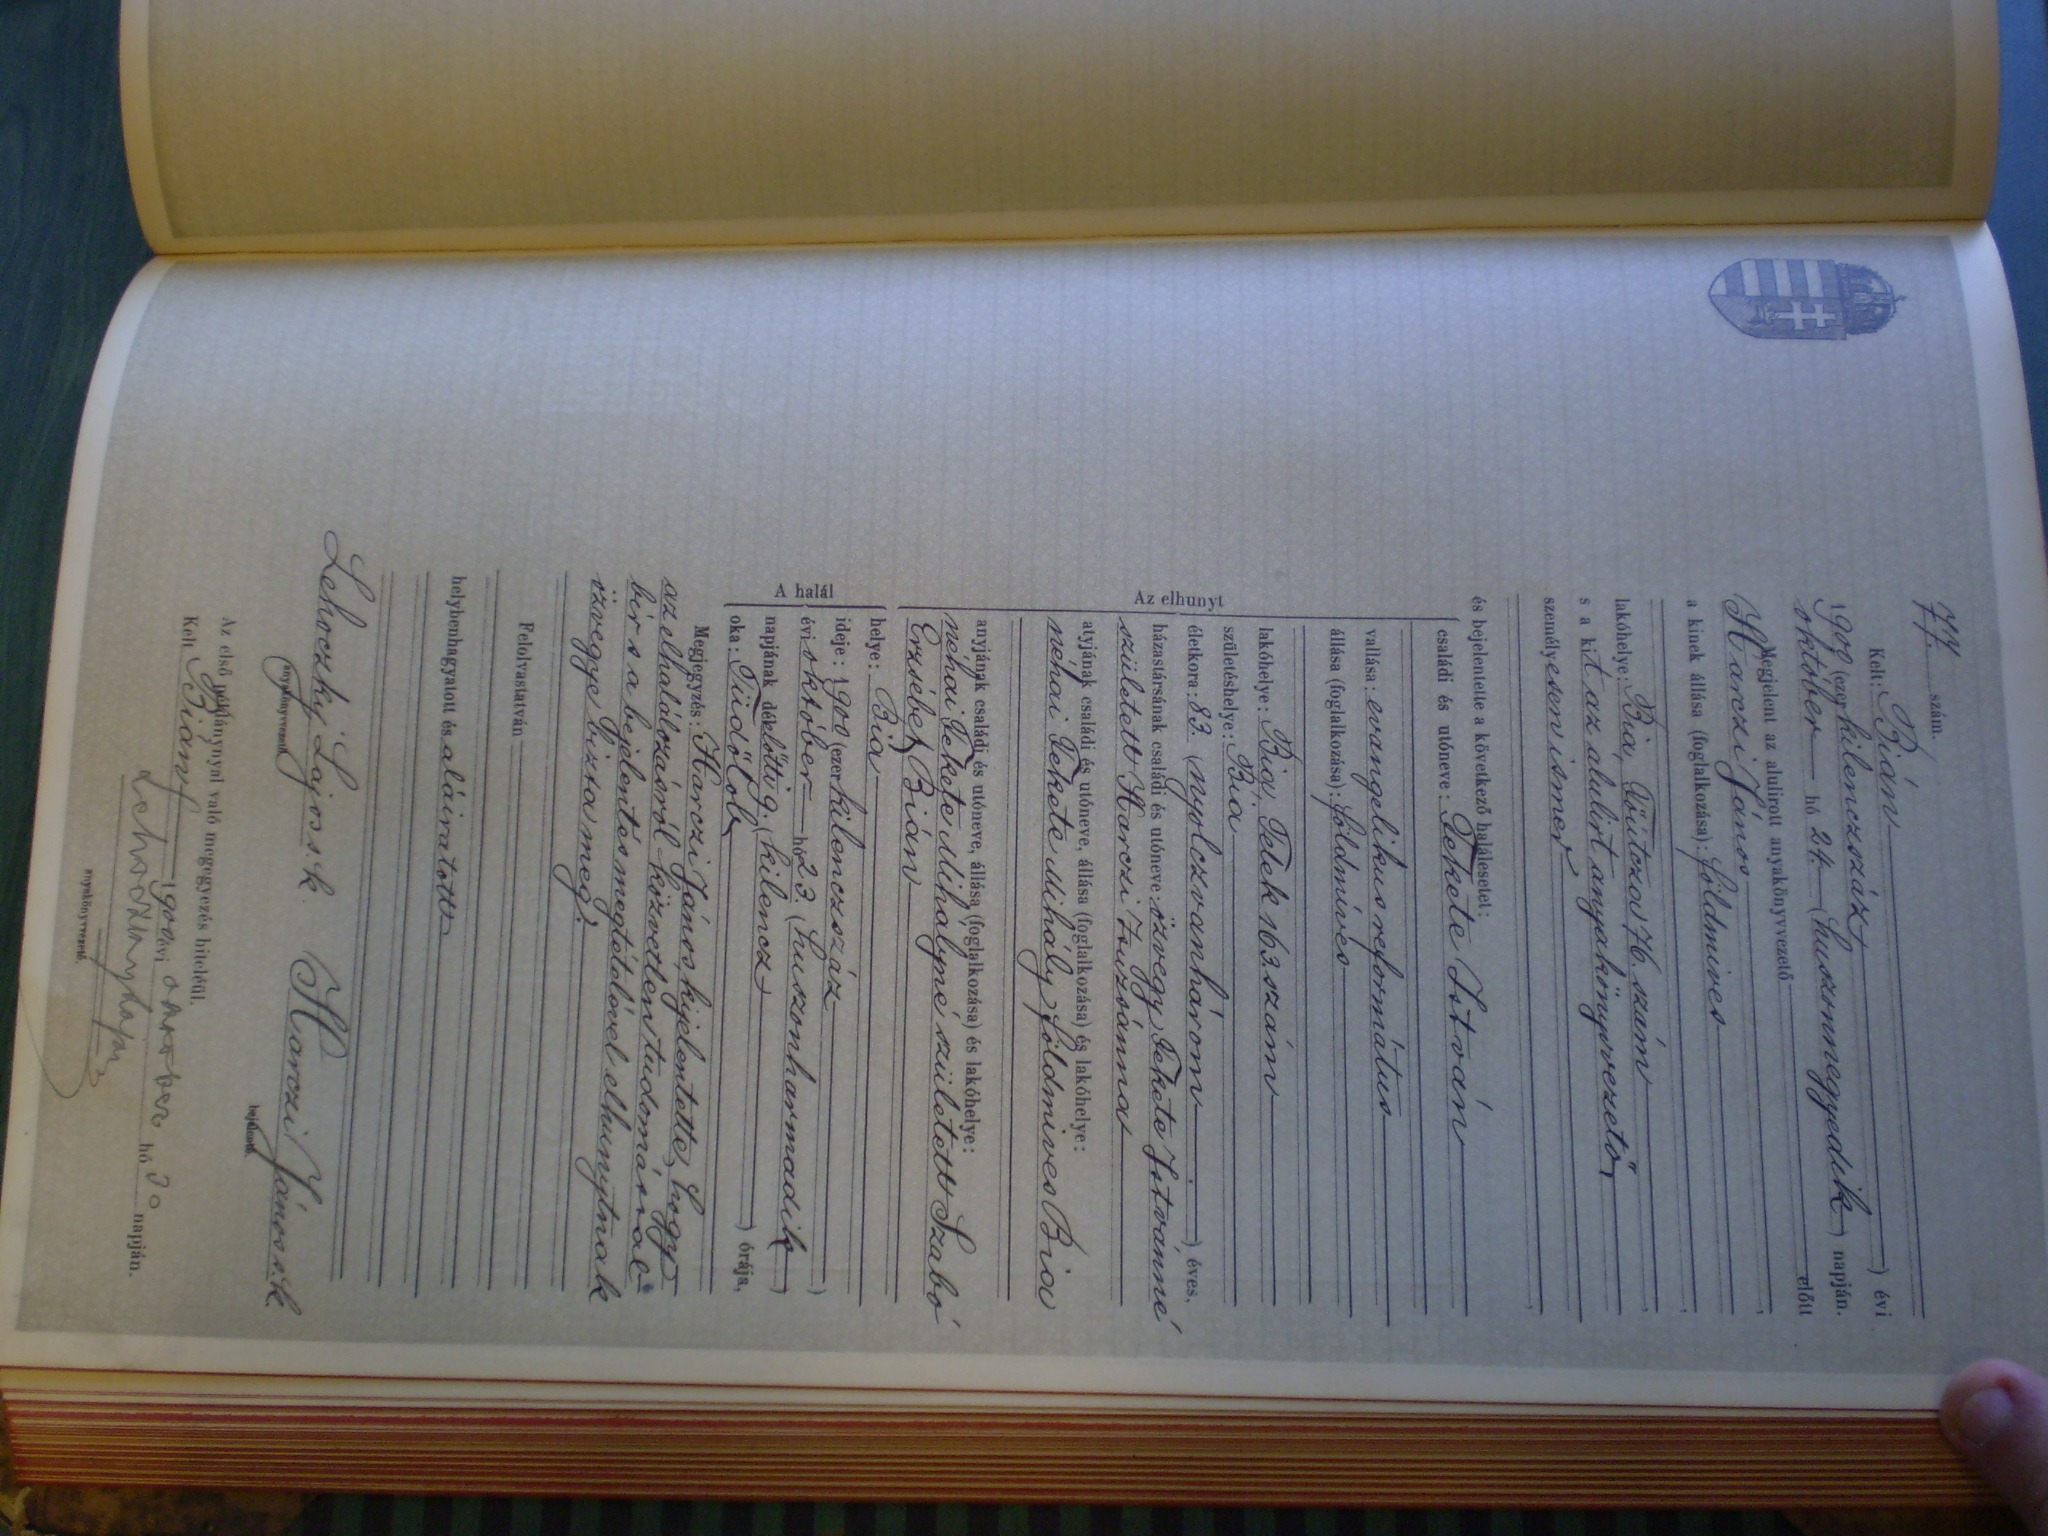 77. szám.
Kelt: Bián 
1900 (ezer kilenczszáz) évi
október hó 24. (huszonnegyedik) napján.
Megjelent az alulirott anyakönyvvezető előtt
Harczi János
a kinek állása (foglalkozása): földmives
lakóhelye: Bia, Főútcza 76. szám
s a kit az alulirt anyakönyvvezető
személyesen ismer
és bejelentette a következő halálesetet:
Az elhunyt
családi és utóneve: Fekete István
vallása: evangelikus református
állása (foglalkozása): földmíves
lakóhelye: Bia, Telek 163. szám
születéshelye: Bia
életkora: 83. (nyolczvanhárom) éves,
házastársának családi és utóneve: özvegy Fekete Istvánné
született Harczi Zsuzsánna
atyjának családi és utóneve, állása (foglalkozása) és lakóhelye:
néhai Fekete Mihály földmives Bia
anyjának családi és utóneve, állása (foglalkozása) és lakóhelye:
néhai Fekete Mihályné született Szabó
Erzsébet Bián
A halál
helye: Bia
ideje: 1900 (ezer kilenczszáz)
évi október hó 23. (huszonharmadik)
napjának délelőtti 9. (kilencz) órája,
oka: Tüdőlob
Megjegyzés: Harczi János kijelentette, hogy
az elhalálozásról közvetlen tudomással
bir s a bejelentés megtételével elhunytnak
özvegye bizta meg.
Felolvastatván
helybenhagyatott és aláiratott
Lehoczky Lajos s. k. Harczi János s. k.
anyakönyvvezető. bejelentő.
Az első példánynyal való megegyezés hiteléül.
Kelt Bián 1900 évi október hó 30 napján.
Lehoczky Lajos
anyakönyvvezető.